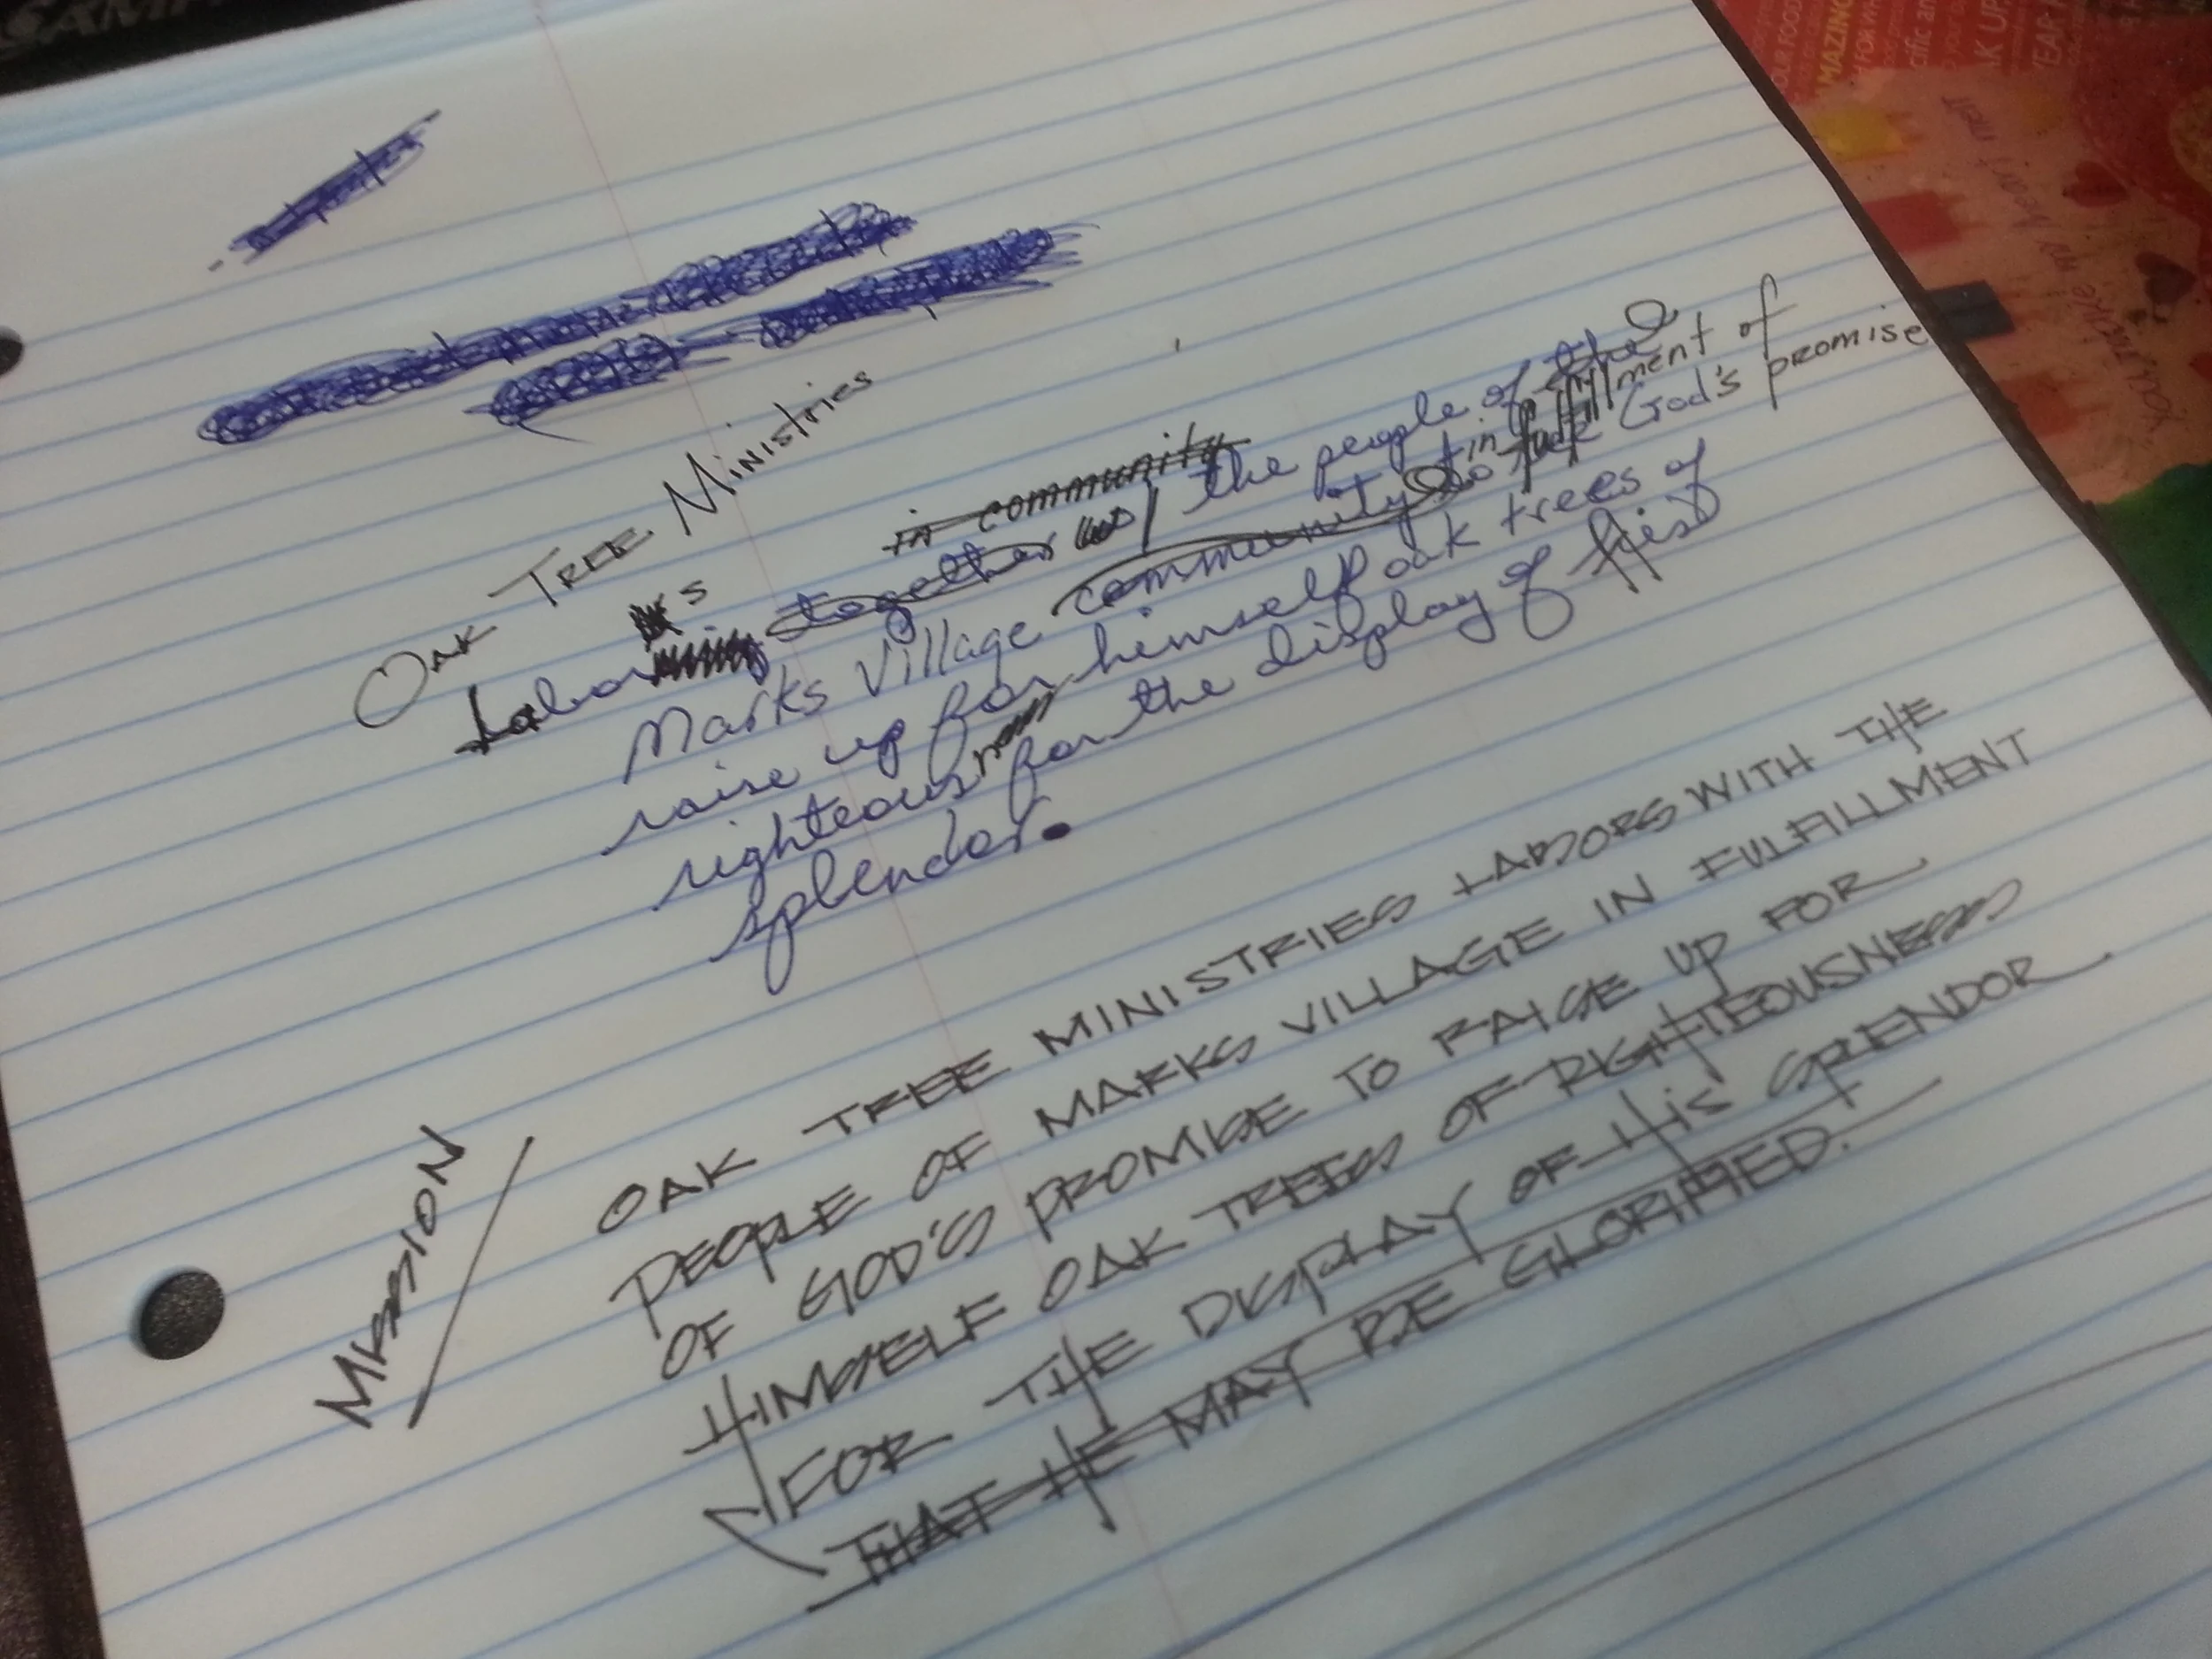 SAM
Oak Tree Ministries
in community
s
Labor together w/ the people of the
in fulfillment of
Marks Village community to God's promise
raise up for himself oak trees of
righteousness for the display of His
splendor.
MISSION
OAK TREE MINISTRIES LABORS WITH THE
PEOPLE OF MARKS VILLAGE IN FULFILLMENT
OF GOD'S PROMISE TO RAISE UP FOR
HIMSELF OAK TREES OF RIGHTEOUSNESS
FOR THE DISPLAY OF HIS SPLENDOR.
THAT HE MAY BE GLORIFIED.
OUR FOOD
AMAZING
FOR WH
cific an
AK UP
YEAR